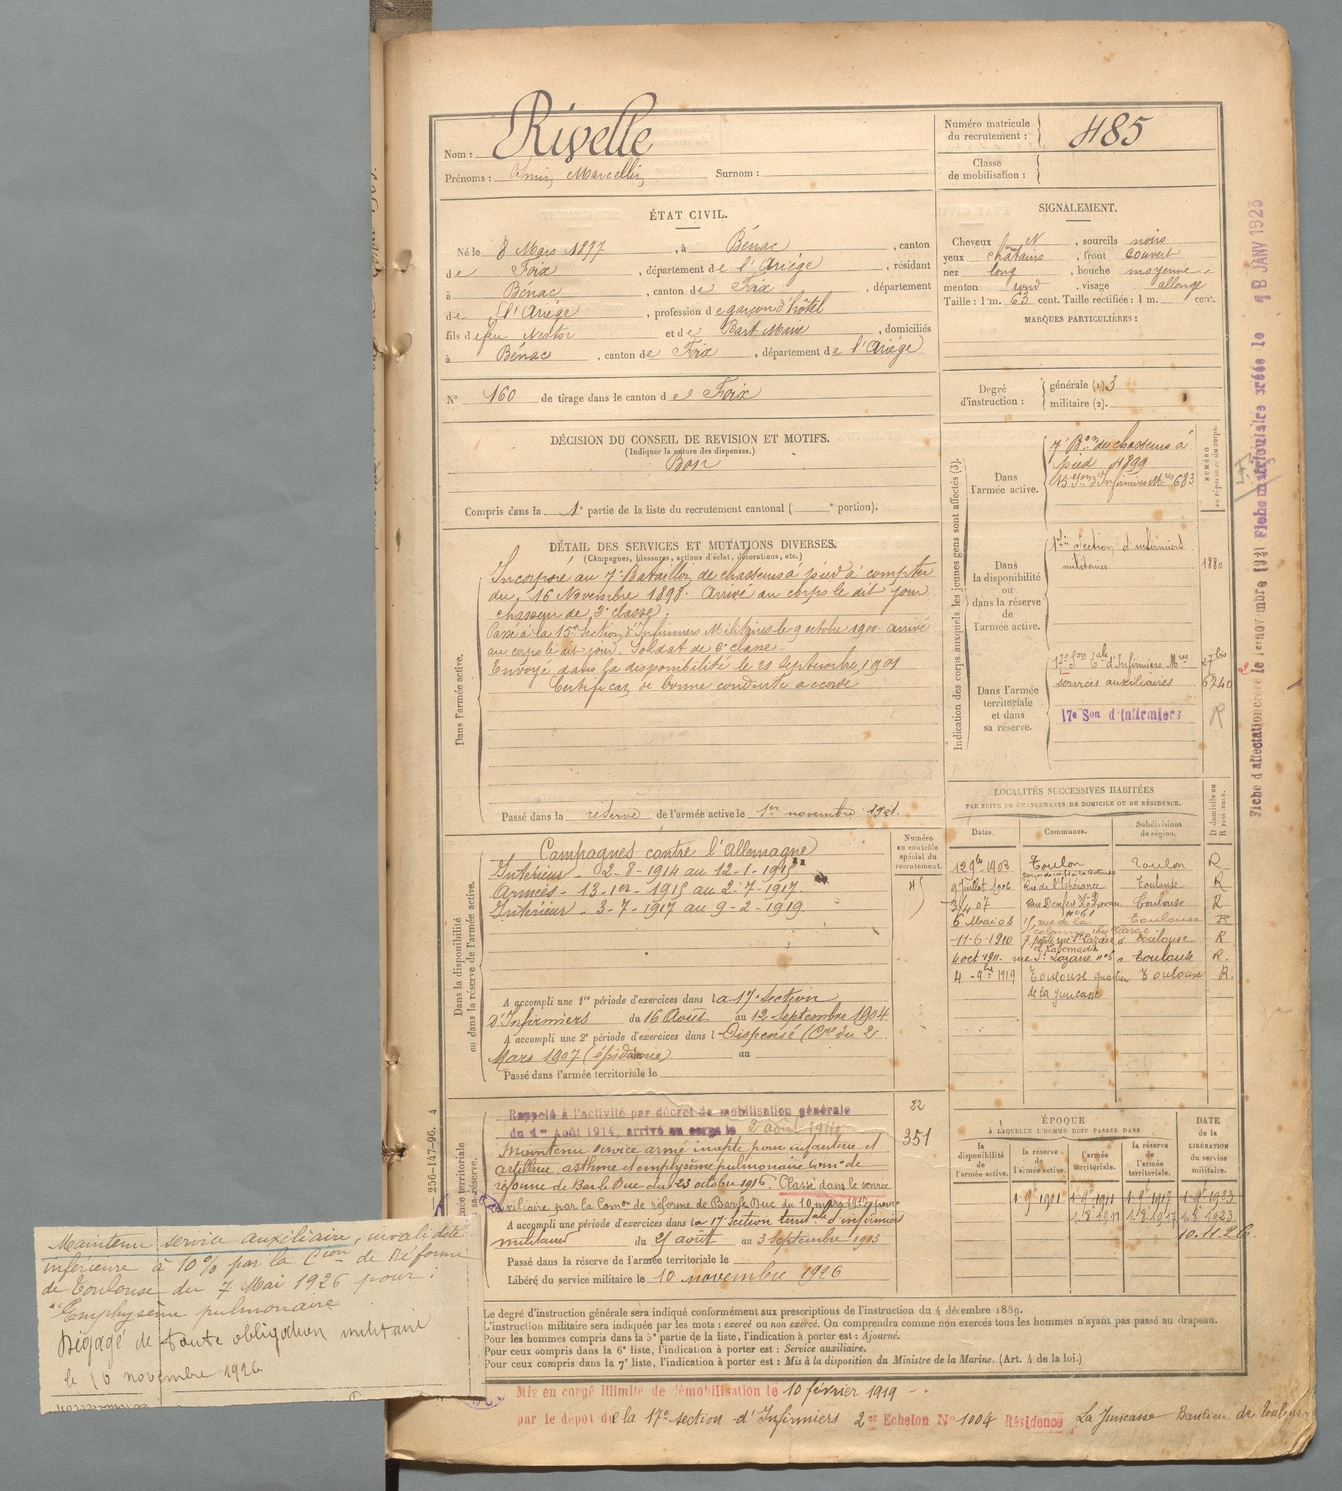 Nom : Rivelle
Prénoms : Marcellin Surnom :
Numéro matricule
du recrutement : 485
Classe
de mobilisation :
ÉTAT CIVIL.
Né le 8 Mars 1877, à Bénac, canton
de Foix, département de l'Ariège, résidant
à Bénac, canton de Foix, département
de l'Ariège, profession de garçon d'hôtel
fils de feu Nestor et de Bart Marie, domiciliés
à Bénac, canton de Foix, département de l'Ariège
N° 160 de tirage dans le canton de Foix
SIGNALEMENT.
Cheveux N, sourcils noirs
yeux châtains, front couvert
nez long, bouche moyenne
menton rond, visage allongé
Taille : 1 m. 63 cent. Taille rectifiée : 1 m. cent.
MARQUES PARTICULIÈRES :
Degré
d'instruction :
générale (1). 3
militaire (2).
DÉCISION DU CONSEIL DE REVISION ET MOTIFS.
(Indiquer la nature des dispenses.)
Bon
Compris dans la 1e partie de la liste du recrutement cantonal ( e portion).
DÉTAIL DES SERVICES ET MUTATIONS DIVERSES.
(Campagnes, blessures, actions d'éclat, décorations, etc.)
Dans l'armée active.
Incorporé au 7e Bataillon de chasseurs à pied à compter
du 16 Novembre 1898. Arrivé au corps le dit jour
chasseur de 2e classe.
Passé à la 15e Section d'Infirmiers Militaires le 9 octobre 1900. Arrivé
au corps le dit jour. Soldat de 2e classe.
Envoyé dans la disponibilité le 21 Septembre 1901
Certificat de bonne conduite accordé
Passé dans la réserve de l'armée active le 1er novembre 1901.
Indication des corps auxquels les jeunes gens sont affectés (3).
NUMÉRO
au répertoire du corps.
Dans
l'armée active.
7e Bon de chasseurs à
pied 4899
15e Son d'Infirmiers Mres 683
Dans
la disponibilité
ou
dans la réserve
de
l'armée active.
Section d'infirmiers
militaires 1880
Dans l'armée
territoriale
et dans
sa réserve.
d'Infirmiers Mres 27 bis
services auxiliaires 6240
17e Son d'Infirmiers
Fiche matriculaire créée le 18 JANV 1923
LOCALITÉS SUCCESSIVES HABITÉES
PAR SUITE DE CHANGEMENTS DE DOMICILE OU DE RÉSIDENCE.
Dates. Communes. Subdivisions de région. D domicile ou R résidence.
12 9bre 1903 Toulon Toulon R
9 Juillet 1906 Rue de l'Espérance Toulouse R
3/4 07 Toulouse R
6 Mai 08 rue de la Toulouse R
11-6-1910 Toulouse R
4 oct 1911. rue St Lazare n° 5 Toulouse R.
4 - 9bre 1919 Toulouse quartier Toulouse R.
de la Juncasse
Dans la disponibilité
ou dans la réserve de l'armée active.
Numéro
au contrôle
spécial du
recrutement.
Campagnes contre l'Allemagne
Intérieur - 2-8-1914 au 12-1-1915
Armées - 13-1er-1915 au 2-7-1917.
Intérieur - 3-7-1917 au 9-2-1919.
A accompli une 1re période d'exercices dans la 17e Section
d'Infirmiers du 16 Août au 12 Septembre 1904
A accompli une 2e période d'exercices dans l Dispensé (Cre du 2
Mars 1907 (épidémie) au
Passé dans l'armée territoriale le
Rappelé à l'activité par décret de mobilisation générale
du 1er Août 1914, arrivé au corps le 2 août 1914
22
351
Maintenu service armé inapte pour infanterie et
artillerie asthme et emphysème pulmonaire Comon de
réforme de Bar le Duc du 23 octobre 1916. Classé dans le service
auxiliaire par la Comon de réforme de Bar le Duc du 10 mars 1917
A accompli une période d'exercices dans la 17 section territale d'infirmiers
militaires du 25 août au 3 septembre 1913
Passé dans la réserve de l'armée territoriale le
Libéré du service militaire le 10 novembre 1926
ÉPOQUE
À LAQUELLE L'HOMME DOIT PASSER DANS
la disponibilité de l'armée active.
la réserve de l'armée active.
l'armée territoriale.
la réserve de l'armée territoriale.
DATE de la LIBÉRATION du service militaire.
1-9e 1901 1-9e 1911 1-9e 1917 1-9e 1923
1-8e 1911 1-8e 1917 1-8e 1923
10.11.26
256-147-96. 4
Maintenu service auxiliaire, invalidité
inférieure à 10% par la Cion de Réforme
de Toulouse du 7 Mai 1926 pour :
Emphysème pulmonaire
Dégagé de toute obligation militaire
le 10 novembre 1926.
Le degré d'instruction générale sera indiqué conformément aux prescriptions de l'instruction du 4 décembre 1889.
L'instruction militaire sera indiquée par les mots : exercé ou non exercé. On comprendra comme non exercés tous les hommes n'ayant pas passé au drapeau.
Pour les hommes compris dans la 5e partie de la liste, l'indication à porter est : Ajourné.
Pour ceux compris dans la 6e liste, l'indication à porter est : Service auxiliaire.
Pour ceux compris dans la 7e liste, l'indication à porter est : Mis à la disposition du Ministre de la Marine. (Art. 4 de la loi.)
Mis en congé illimité de démobilisation le 10 février 1919
par le dépôt de la 17e section d'Infirmiers 2er Echelon N° 1004 Résidence La Juncasse Banlieu de Toulouse